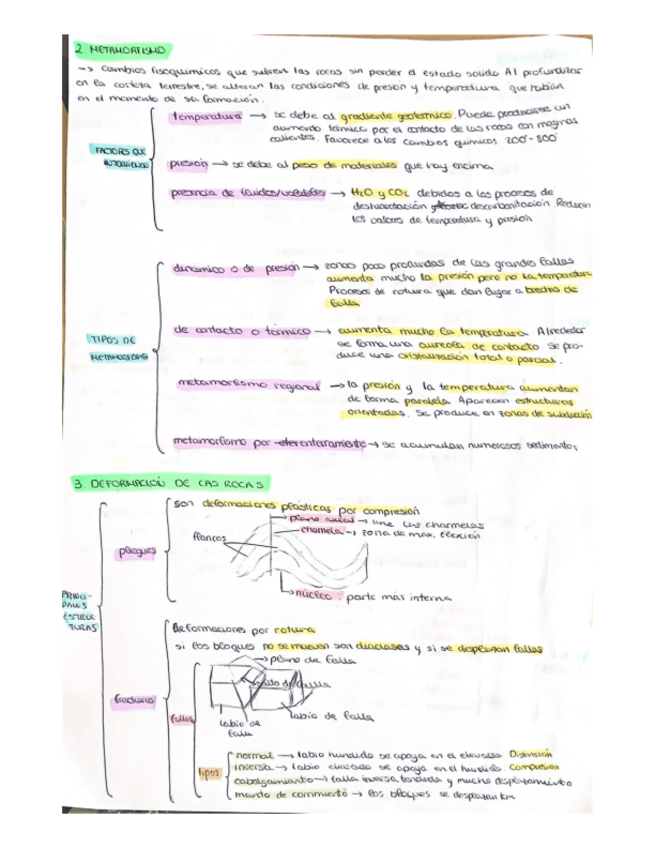 2 METAMORFISMO
-> Cambios fisoquimicos que sufren las rocas sin perder el estado solido Al profundizar
en la corteza terrestre, se alteran las condiciones de presion y temperatura que habían
en el momento de su formación.
FACTORES QUE
temperatura -> se debe al gradiente geotermico. Puede producirse un
aumento termico por el contacto de las rocas con magmas
calientes. Favorece a los cambios quimicos 200°-800°
presión -> se debe al peso de materiales que hay encima
presencia de fluidos/volatiles -> H2O y CO2 debidos a los procesos de
deshidratación descarbonitacion Reducen
los valores de temperatura y presion
TIPOS DE
METAMORFISMO
dinámico o de presión -> zonas poco profundas de las grandes fallas
aumenta mucho la presión pero no la temperatura
Procesos de rotura que dan lugar a brechas de
falla
de contacto o térmico -> aumenta mucho la temperatura Alrededor
se forma una aureola de contacto Se pro-
duce una cristalización total o parcial.
metamorfismo regional -> la presión y la temperatura aumentan
de forma paralela Aparecen estructuras
orientadas. Se produce en zonas de subducción
metamorfismo por enterramiento -> se acumulan numerosos sedimentos
3. DEFORMACIÓN DE LAS ROCAS
PRINCI-
PALES
ESTRUC
TURAS
pliegues
son deformaciones plásticas por compresión
plano axial -> une las charnelas
charnela -> zona de max. flexión
flancos
núcleo: parte más interna
fracturas
deformaciones por rotura
si los bloques no se mueven son diaclases y si se desplazan fallas
fallas
plano de falla
salto de falla
labio de
falla
labio de falla
tipos
normal -> labio hundido se apoya en el elevado Distensión
inversa -> labio elevado se apoya en el hundido Compresión
cabalgamiento -> falla inversa, tendida y mucho desplazamiento
manto de corrimiento -> los bloques se desplazan km